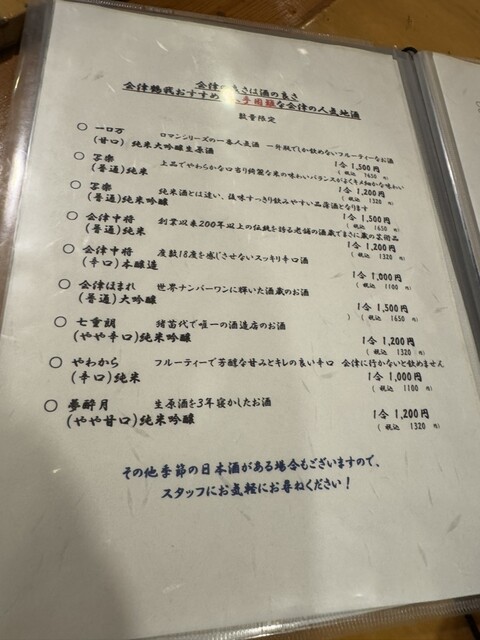 会津の良さは酒の良さ
会津鶴我おすすめ 入手困難な会津の人気地酒
数量限定
〇 一ロ万 ロマンシリーズの一番人気酒 一升瓶でしか飲めないフルーティーなお酒
(甘口) 純米大吟醸生原酒 1合 1,500円
( 税込 1650 円)
〇 写楽 上品でやわらかな口当り綺麗な米の味わいバランスがよくキメ細かな味わい
(普通) 純米 1合 1,200円
( 税込 1320 円)
〇 写楽 純米酒とは違い、旨味すっきり飲みやすい品薄酒となります
(普通) 純米吟醸 1合 1,500円
( 税込 1650 円)
〇 会津中将 創業以来200年以上の伝統を誇る老舗の酒蔵でまさに蔵の芸術品
(普通) 純米 1合 1,200円
( 税込 1320 円)
〇 会津中将 度数18度を感じさせないスッキリ辛口酒
(辛口) 本醸造 1合 1,000円
( 税込 1100 円)
〇 会津ほまれ 世界ナンバーワンに輝いた酒蔵のお酒
(普通) 大吟醸 1合 1,500円
( 税込 1650 円)
〇 七重郎 猪苗代で唯一の酒造店のお酒
(やや辛口) 純米吟醸 1合 1,200円
( 税込 1320 円)
〇 やわから フルーティーで芳醇な甘みとキレの良い辛口 会津に行かないと飲めません
(辛口) 純米 1合 1,000円
( 税込 1100 円)
〇 夢醉月 生原酒を3年寝かしたお酒
(やや甘口) 純米吟醸 1合 1,200円
( 税込 1320 円)
その他季節の日本酒がある場合もございますので、
スタッフにお気軽にお尋ねください！